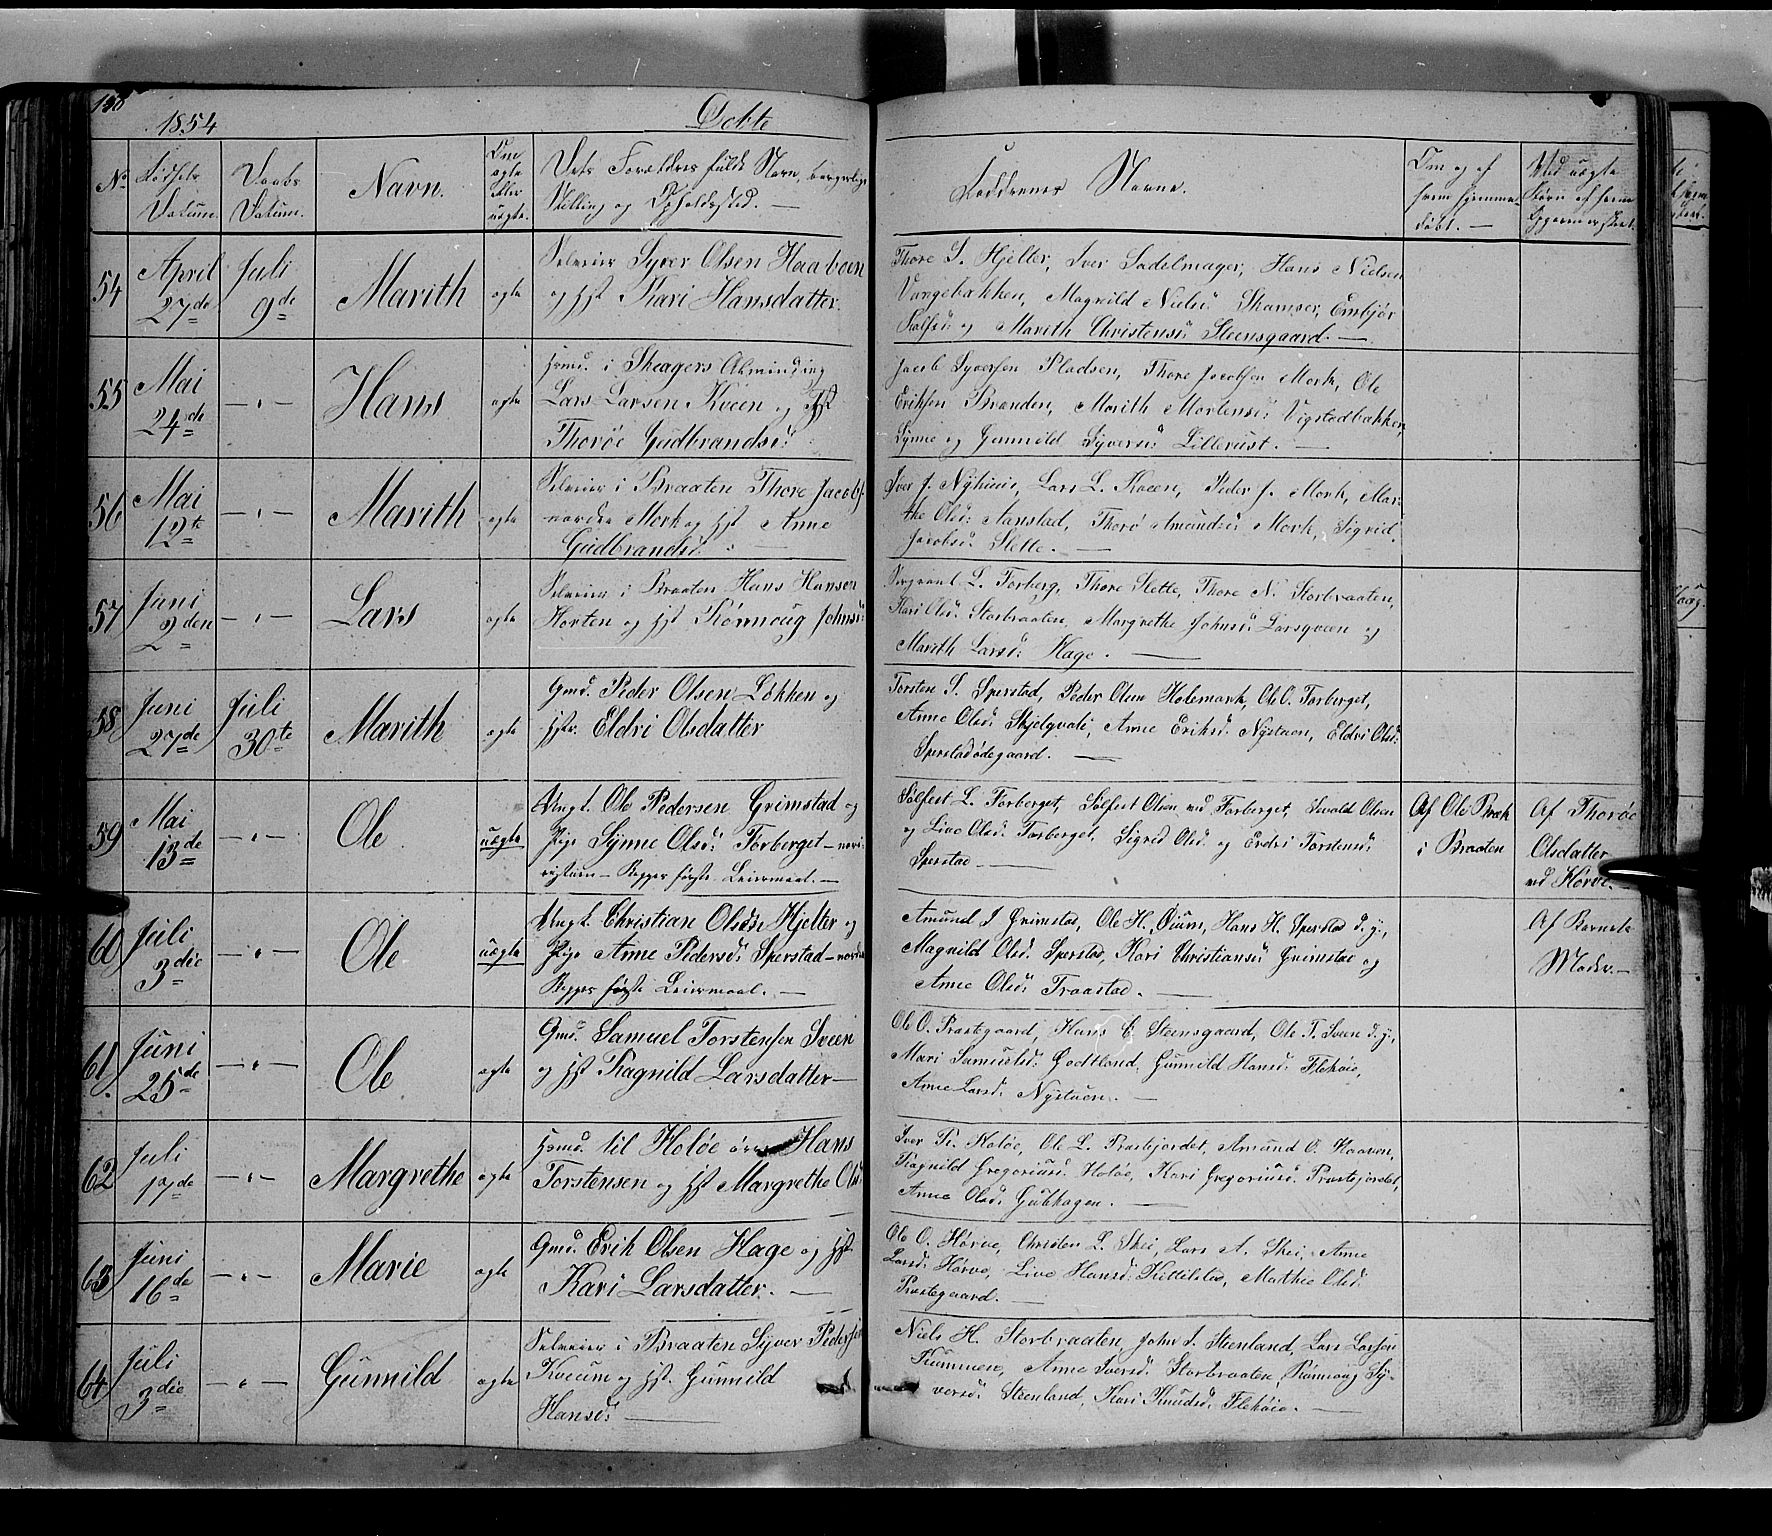 148
1854
Døbte
No
Fødsels Datum.
Daabs Datum.
Navn.
Om ægte eller uægte.
Dets Forældres fulde Navn, borgerlige
Stilling og Opholdssted. —
Faddrenes Navne.
Om og af
hvem hjemme-
døbt. —
Ved uægte
Børn af hvem
54
April 27de
Juli 9de
Marith
ægte
Selveier Syver Olsen Haaboen
og Hst Kari Hansdatter.
Thore S. Hjelter, Iver Sadelmager, Hans Nielsen
Vangebakken, Magnild Nielsd: Skamser, Embjør
og Marith Christensd: Steensgaard. —
55
Mai 24de
— " —
Hans
ægte
Huusmd. i Skeagers Alminding
Lars Larsen Kveen og Hst
Thoröe Gudbrandsd:
Jacob Syversen Pladsen, Thore Jacobsen Mork, Ole
Eriksen Branden, Marith Mortensd: Vigstadbakken,
Synne og Gunnild Syversd: Lillerust. —
56
Mai 12te
— " —
Marith
ægte
Selveier i Braaten Thore Jacobs.
nordre Mork og Hst Anne
Gudbrandsd: —
Iver J. Nyhuus, Lars L. Kveen, Peder J. Mork, Mar-
the Olsd: Aanstad, Thorö Amundsd: Mork, Sigrid
Jacobsd: Slette. —
57
Juni 2den
— " —
Lars
ægte
Selveier i Braaten Hans Hansen
Horten og Hst Rönnoug Johnsd:
Sergeant L. Forberg, Thore Slette, Thore N. Storbraaten,
Kari Olsd: Storbraaten, Margrethe Johnsd: Larsqveen og
Marith Larsd: Hage. —
58
Juni 27de
Juli 30te
Marith
ægte
Gmd. Peder Olsen Løkken og
Hstr. Eldri Olsdatter
Torsten S. Sperstad, Peder Olsen Holemark, Ole O. Forberget,
Anne Olsd: Skjelqvale, Anne Eriksd: Nystuen, Eldri Olsd:
Sperstadødegaard. —
59
Mai 13de
— " —
Ole
uægte
Ungk. Ole Pedersen Grimstad og
Pige Synne Olsd: Forberget —
Begges første Leiermaal. —
Solfest L. Forberget, Solfest Olsen ved Forberget, Iwald Olsen
og Live Olsd: Forberget, Sigrid Olsd. og Eldri Torstensd:
Sperstad —
Af Ole Bræk
i Braaten
Af Thoröe
Olsdatter
ved Hörve.
60
Juli 3die
— " —
Ole
uægte
Ungk. Christian Olsen Hjelter og
Pige Anne Pedersd: Sperstad —
Begges første Leiermaal. —
Amund I Grimstad, Ole H. Öium, Hans H. Sperstad d. y.,
Magnild Olsd. Sperstad, Kari Christiansd: Grimstad og
Anne Olsd: Traastad. —
Af Barnets
Moder. —
61.
Juni 25de
— " —
Ole
ægte
Gmd. Samuel Torstensen Sveen
og Hst Ragnild Larsdatter —
Ole O. Præstegaard, Hans C. Steensgaard, Ole T. Sveen d. y.,
Mari Samuelsd: Godtland, Gunnild Hansd: Flekøie,
Anne Larsd. Nystuen. —
62
Juli 17de
— " —
Margrethe
ægte
Huusmd. til Holöe Hans
Torstensen og Hst Margrethe Olsd:
Iver P. Holöe, Ole L. Præstejordet, Amund O. Haaven,
Ragnild Gregoriusd: Holöe, Kari Gregoriusd. Præstejordet,
Anne Olsd: Gubhagen. —
63
Juni 16de
— " —
Marie
ægte
Gmd. Erik Olsen Hage og Hst.
Kari Larsdatter. —
Ole O. Hörve, Christen L. Skei, Lars A. Skei, Anne
Larsd: Hörve, Live Hansd: Kittilstad, Mathie Olsd.
Præstegaard. —
64
Juli 3die
— " —
Gunnild
ægte
Selveier i Braaten Syver Pedersen
Kveum og Hst. Gunnild
Hansd: —
Niels H. Storbraaten, John I. Steenland, Lars Larsen
Kummen, Anne Iversd: Storbraaten, Rönnoug Sy-
versd: Steenland, Kari Knudsd: Flekøie. —